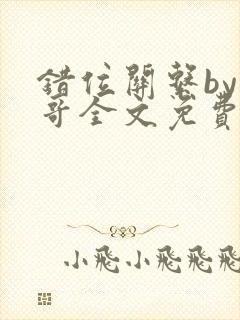 錯位關繫by
哥全文免費
小飛小飛飛飛